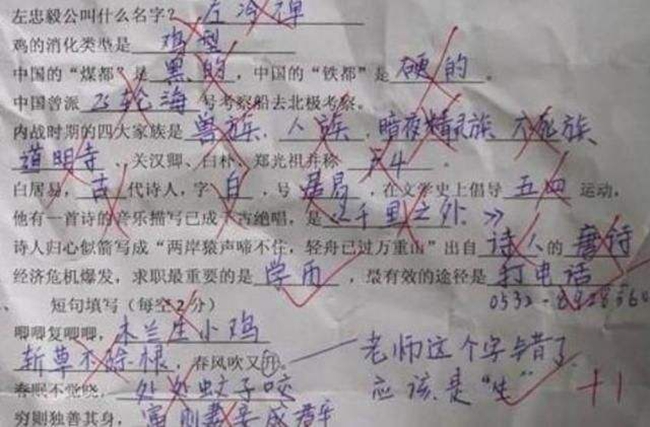 左忠毅公叫什么名字？左冷禅
鸡的消化类型是 鸡型
中国的“煤都”是 黑的，中国的“铁都”是 硬的。
中国曾派 飞轮海 号考察船去北极考察。
内战时期的四大家族是 兽族、人族、暗夜精灵族、不死族、
道明寺、关汉卿、白朴、郑光祖并称 F4。
白居易，古代诗人，字 白，号 居易，在文学史上倡导 五四 运动，
他有一首诗的音乐描写已成千古绝唱，是《千里之外》
诗人归心似箭写成“两岸猿声啼不住，轻舟已过万重山”出自 诗人的 唐诗
经济危机爆发，求职最重要的是 学历，最有效的途径是 打电话
0532-
、 短句填写（每空2分）
唧唧复唧唧，木兰生小鸡
斩草不除根，春风吹又开。——老师这个字写错了
春眠不觉晓，处处蚊子咬 应该是“生” +1
穷则独善其身，富则妻妾成群